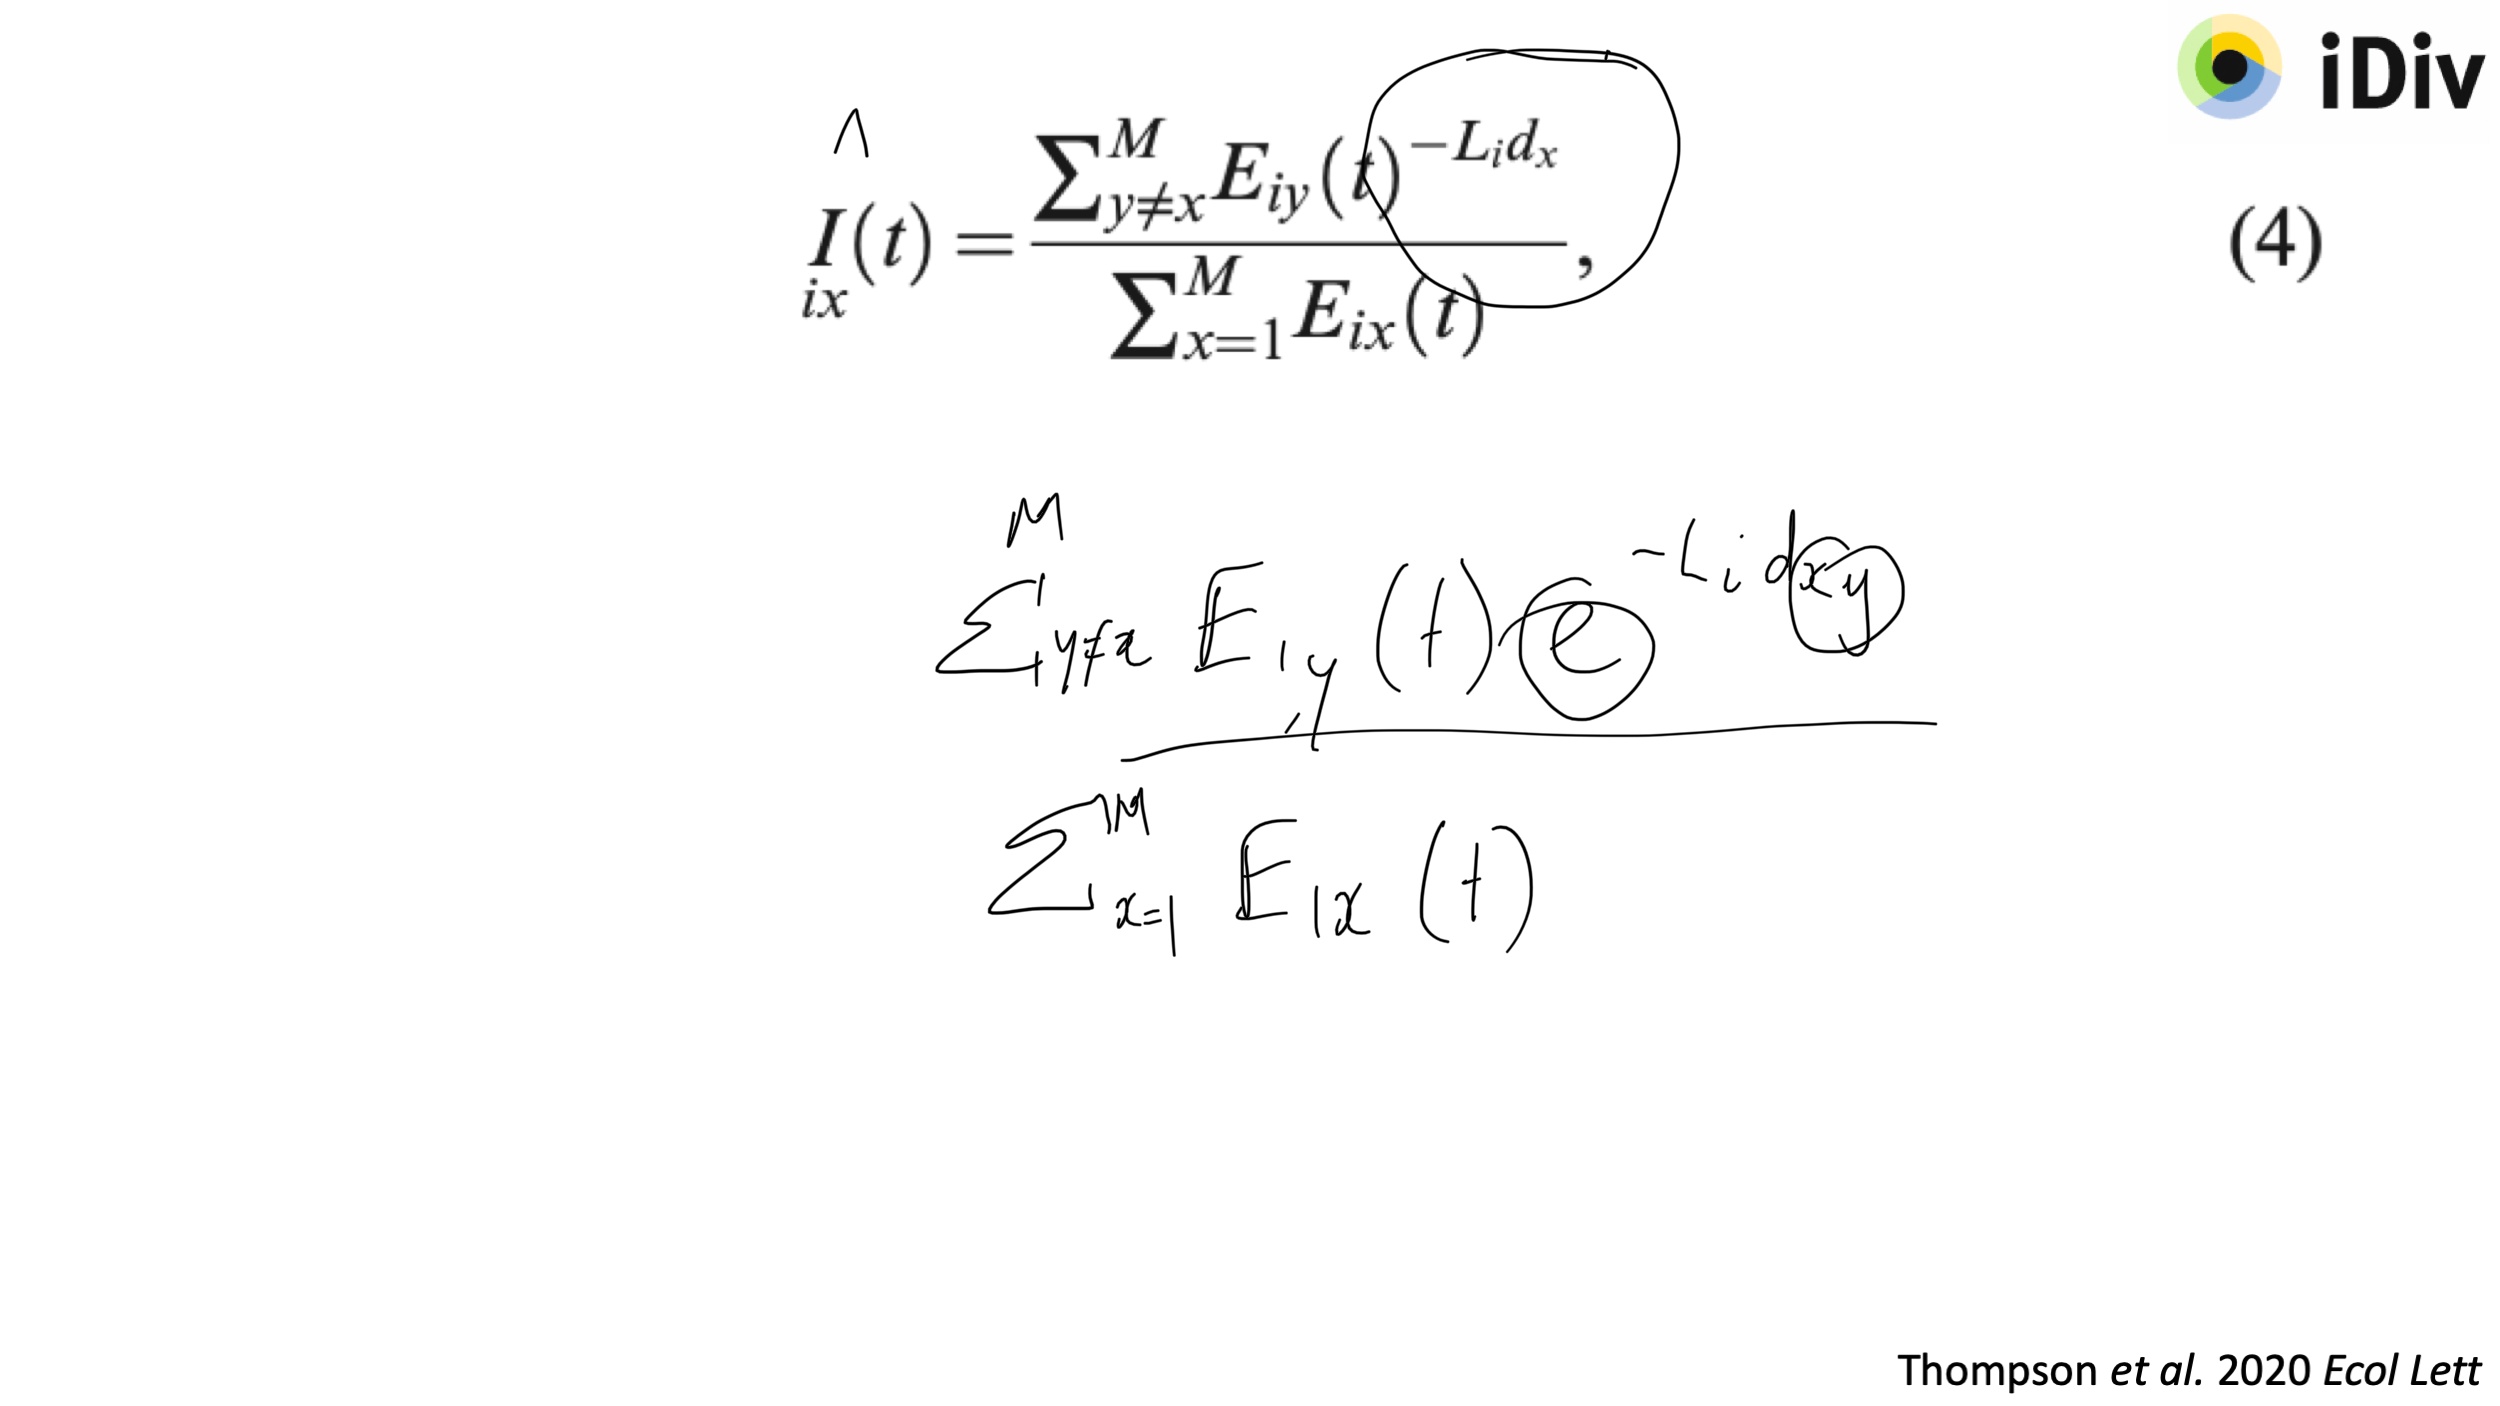 iDiv
^
I_{ix}(t) = \frac{\sum_{y≠x}^{M} E_{iy}(t)^{-L_i d_x}}{\sum_{x=1}^{M} E_{ix}(t)}, (4)
\frac{\sum_{y≠x}^{M} E_{iy}(t) e^{-L_i d_{xy}}}{\sum_{x=1}^{M} E_{ix}(t)}
Thompson et al. 2020 Ecol Lett